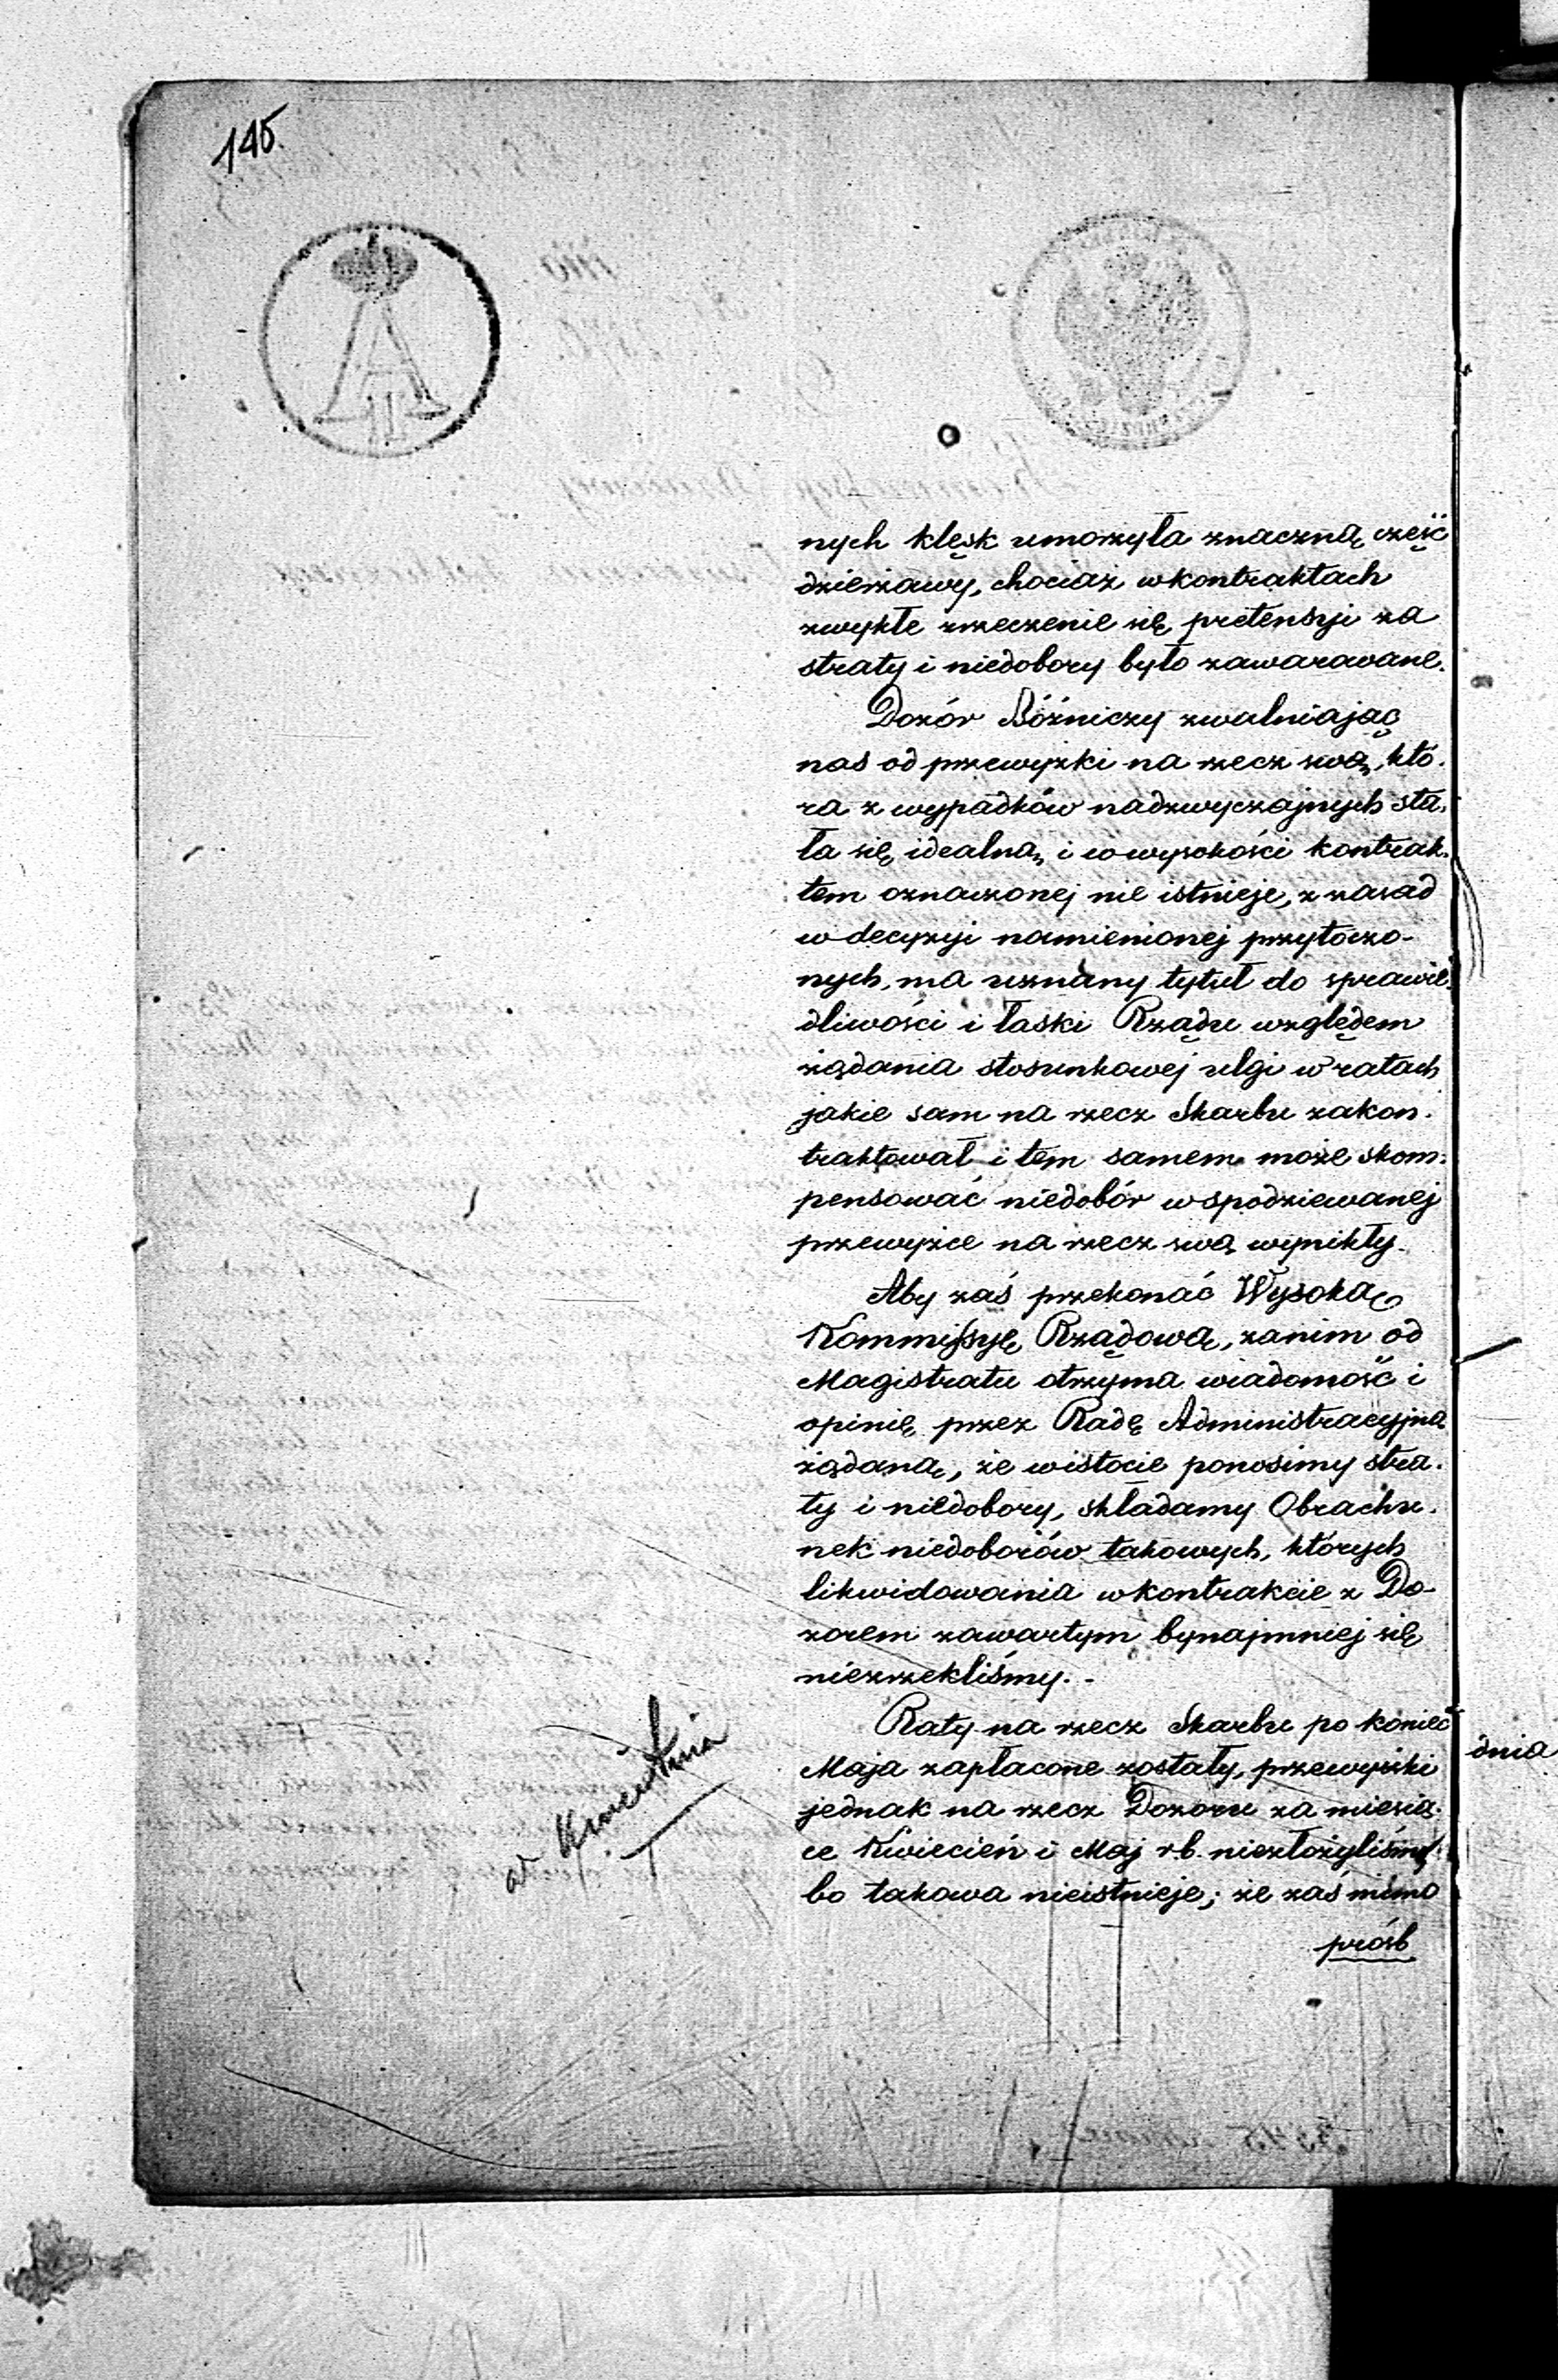 145.
A
II
nych klęsk umorzyła znaczną część
dzierżawy, chociaż w kontraktach
zwykłe zrzeczenie się pretensyi za
straty i niedobory było zawarowane.
Dozór Bóźniczy zwalniając
nas od przewyżki na rzecz swą, któ-
ra z wypadków nadzwyczajnych sta-
ła się idealną i w wysokości kontrak-
tem oznaczonej nie istnieje, z zasad
w decyzyi namienionej przytoczo-
nych, ma uznany tytuł do sprawie-
dliwości i łaski Rządu względem
żądania stosunkowej ulgi w ratach
jakie sam na rzecz Skarbu zakon-
traktował i tem samem może skom-
pensować niedobór w spodziewanej
przewyżce na rzecz swą wynikły.
Aby zaś przekonać Wysoką
Kommissyę Rządową, zanim od
Magistratu otrzyma wiadomość i
opinię przez Radę Administracyjną
żądaną, że w istocie ponosimy stra-
ty i niedobory, składamy Obrachu-
nek niedoborów takowych, których
likwidowania w kontrakcie z Do-
zorem zawartym bynajmniej się
niezrzekliśmy. -
Raty na rzecz Skarbu po koniec
Maja zapłacone zostały, przewyżki
jednak na rzecz Dozoru za miesią-
ce Kwiecień i Maj r b. niezłożyliśmy
bo takowa nieistnieje; że zaś mimo
próśb
dnia